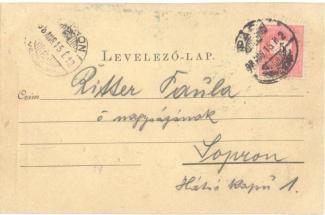 LEVELEZŐ-LAP.
Czim:
Ritter Paula
ő nagyságának
Sopron
Hátsó kapu 1.